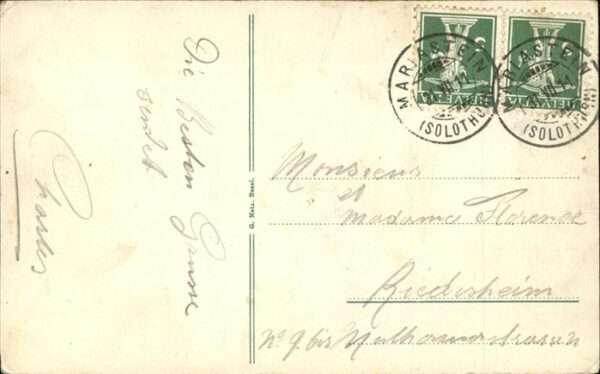 Die Besten Grüsse
sendet
Charles
G. Metz, Basel.
MARIASTEIN
(SOLOTHURN)
MARIASTEIN
(SOLOTHURN)
HELVETIA
HELVETIA
Monsieur
et
Madame Florence
Riedisheim
Nº 9 bis